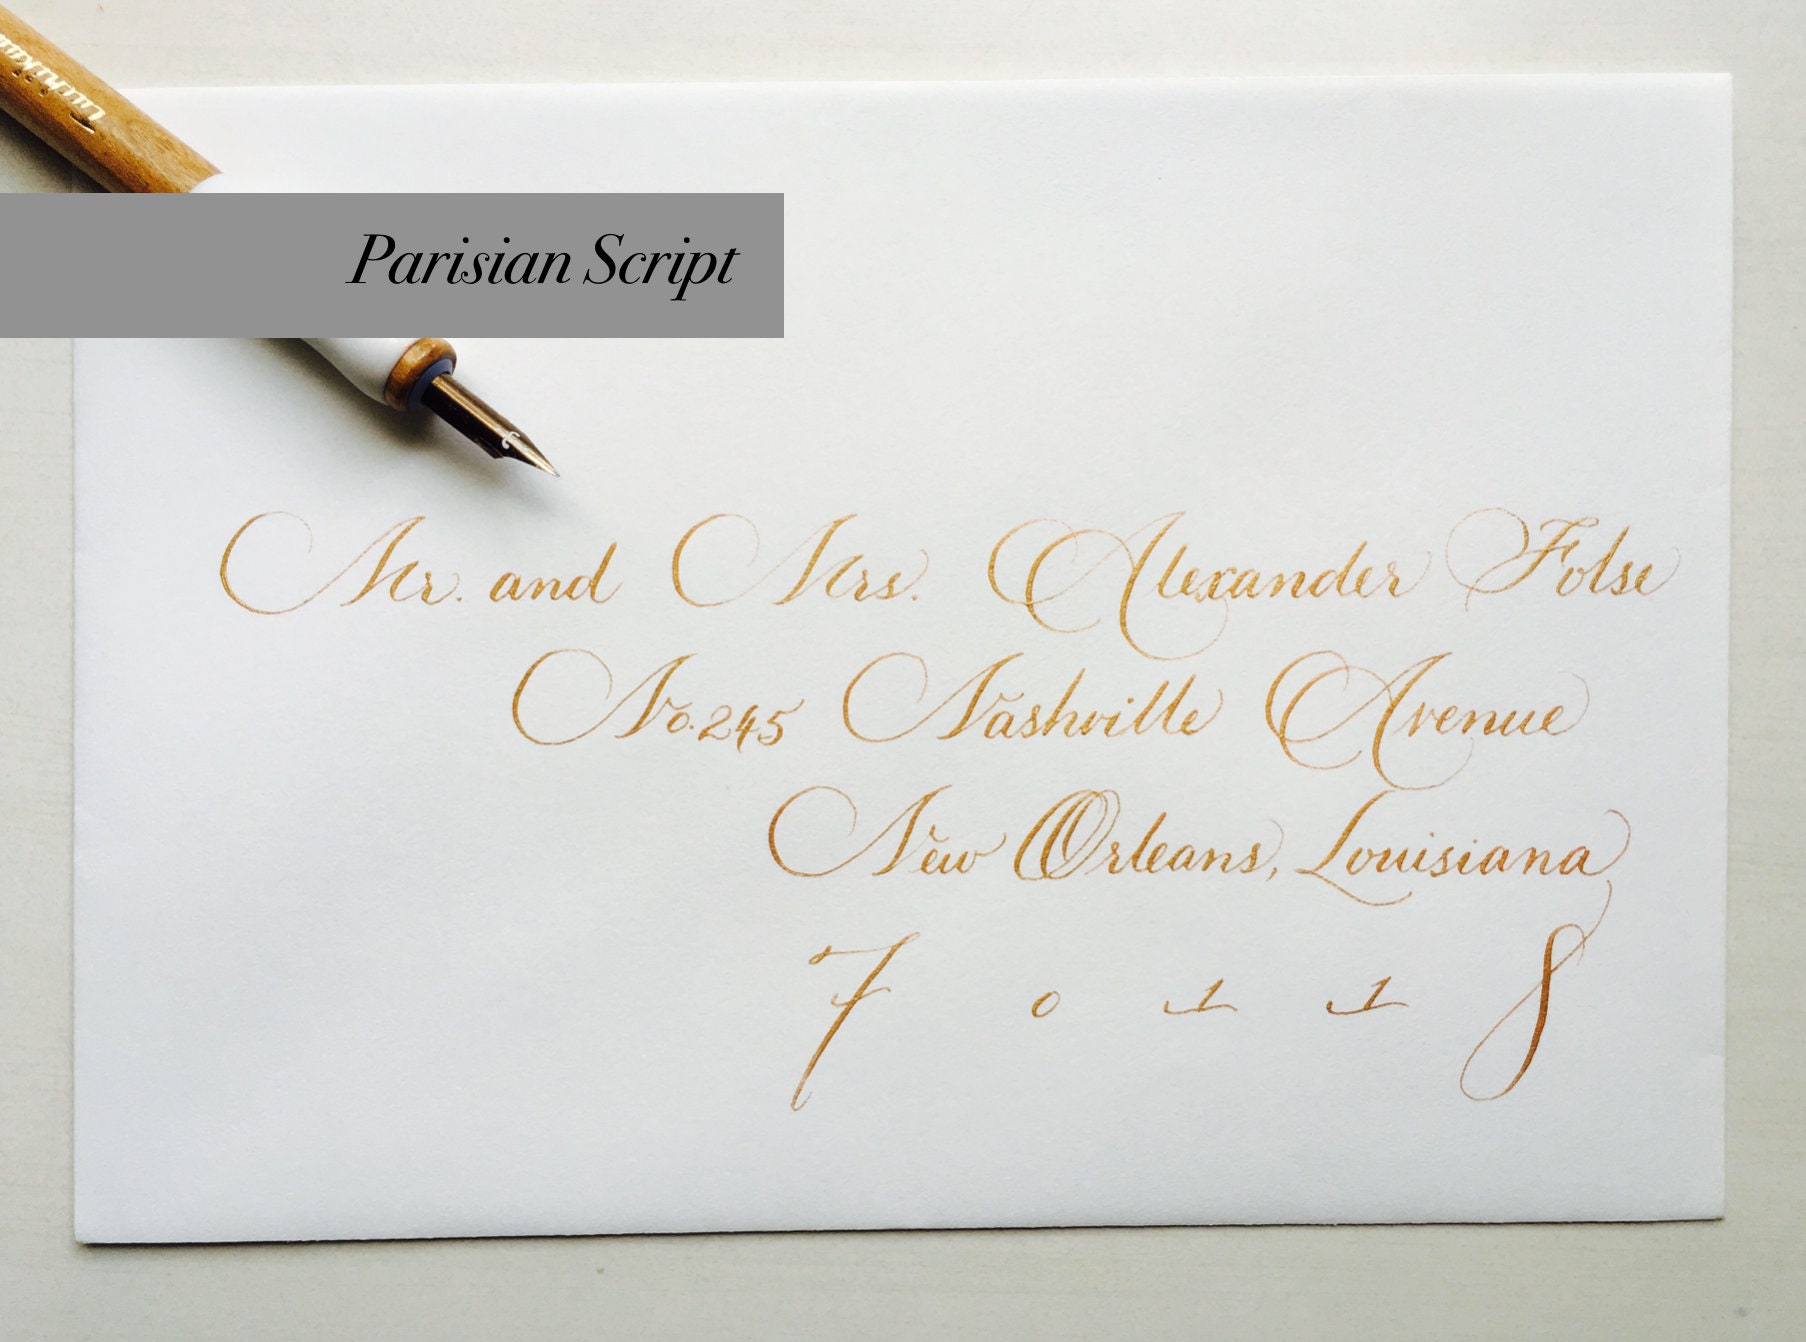 Parisian Script
Mr. and Mrs. Alexander Folse
No. 245 Nashville Avenue
New Orleans, Louisiana
7 0 1 1 8